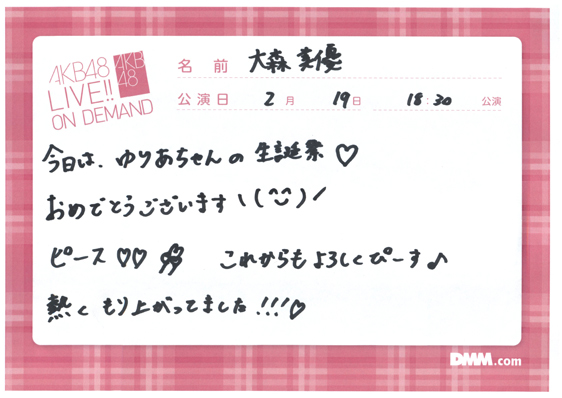 AKB48
LIVE!!
ON DEMAND
AKB
48
名前 大森美優
公演日 2月 19日 18:30 公演
今日は、ゆりあちゃんの生誕祭♡
おめでとうございます\(^^)/
ピース♡♡ これからもよろしくぴーす♪
熱くもり上がってました!!!♡
DMM.com